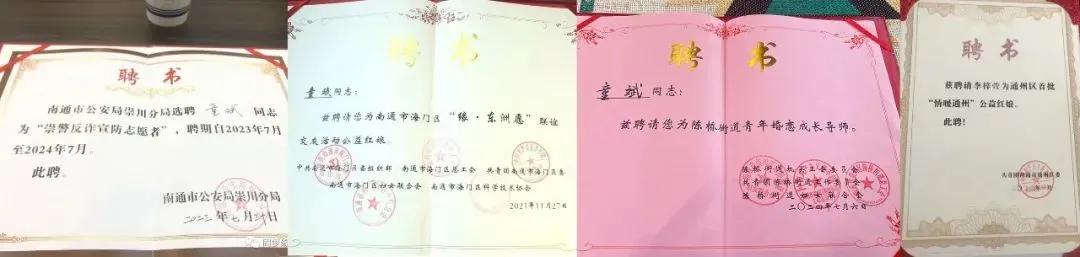 聘书
南通市公安局崇川分局选聘 童斌 同志
为“崇警反诈宣防志愿者”，聘期自2023年7月
至2024年7月。
此聘。
南通市公安局崇川分局
聘书
童斌同志：
兹聘请您为南通市海门区“缘·东洲愿”联谊
交友活动公益红娘。
中共南通市海门区委组织部 南通市海门区总工会 共青团南通市海门区委
南通市海门区妇女联合会 南通市海门区科学技术协会
2021年11月27日
聘书
童斌同志：
兹聘请您为陈桥街道青年婚恋成长导师。
陈桥街道妇女联合会
二〇二四年七月六日
聘书
兹聘请李梓萱为通州区首批
“情暖通州”公益红娘。
此聘！